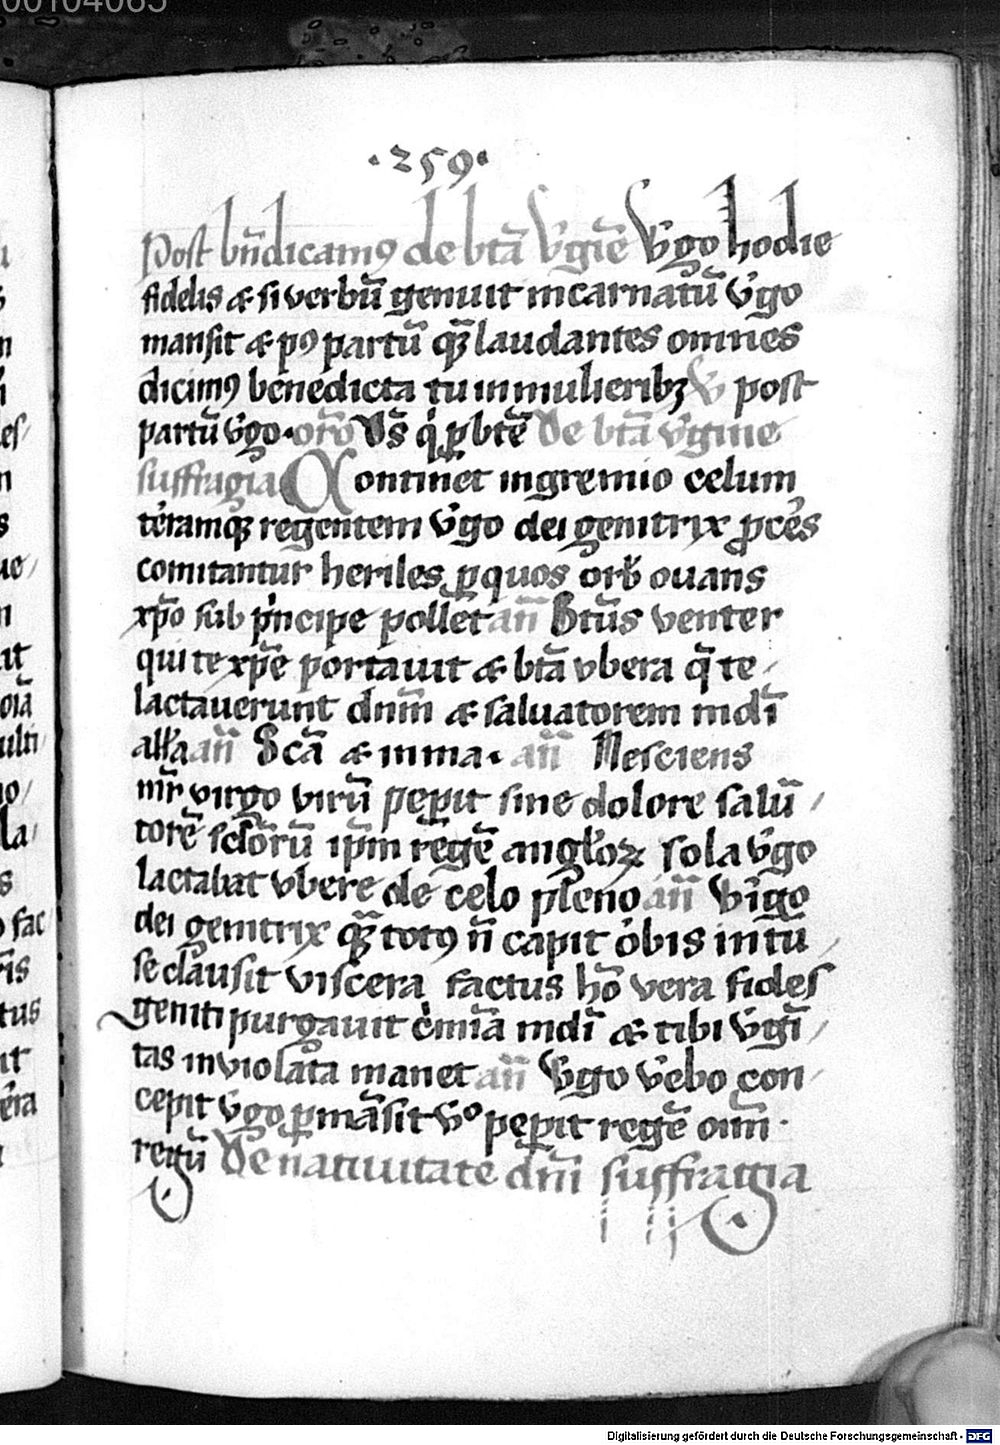 00104065
·259·
Post bn̄dicamꝰ de btā v̄gīe Vgo hodie
fidelis & si verbū genuit incarnatū v̓go
mansit & pꝰ partū qꝫ̄ laudantes omnes
dicimꝰ benedicta tu in mulieribꝫ V post
partū v̓go· or̄o Ds̄ q̓ ꝑ btē De btā v̓gine
suffragia Continet in gremio celum
terramqꝫ regentem v̓go dei genitrix ꝓces
comitantur heriles ꝑ quos orb̓ ouans
xp̄o sub p̓ncipe pollet an̄ Btūs venter
qui te xp̄e portauit & btā vbera q̄ te
lactauerunt dn̄m & saluatorem mdī
allã an̄ Scā & inma· an̄ Nesciens
mr̄ virgo virū peꝑit sine dolore salū /
torē sclōrū ip̄m regē angl̓oꝝ sola v̓go
lactabat vbere de celo pleno an̄ V̓igo
dei genitrix qꝫ̄ totꝰ n̄ capit orbis in tū /
se clausit viscera factus hō vera fides
geniti purgauit c̓mīa mdī & tibi v̓gī /
tas inviolata manet an̄ V̓go v̓ebo con /
cepit v̓go ꝑmāsit vᵒ peꝑit regē oīm ·
regū De natiuitate dn̄i suffragia
Digitalisierung gefördert durch die Deutsche Forschungsgemeinschaft - DFG